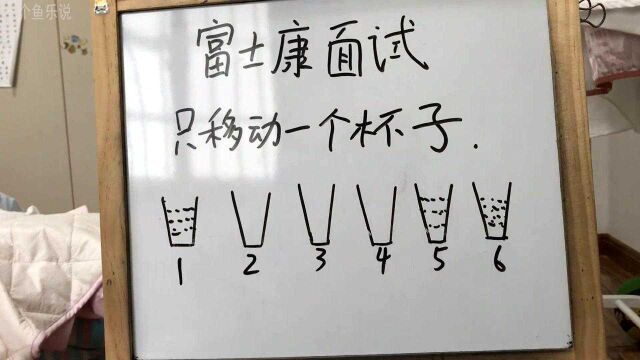 个鱼乐说
富士康面试
只移动一个杯子.
1 2 3 4 5 6